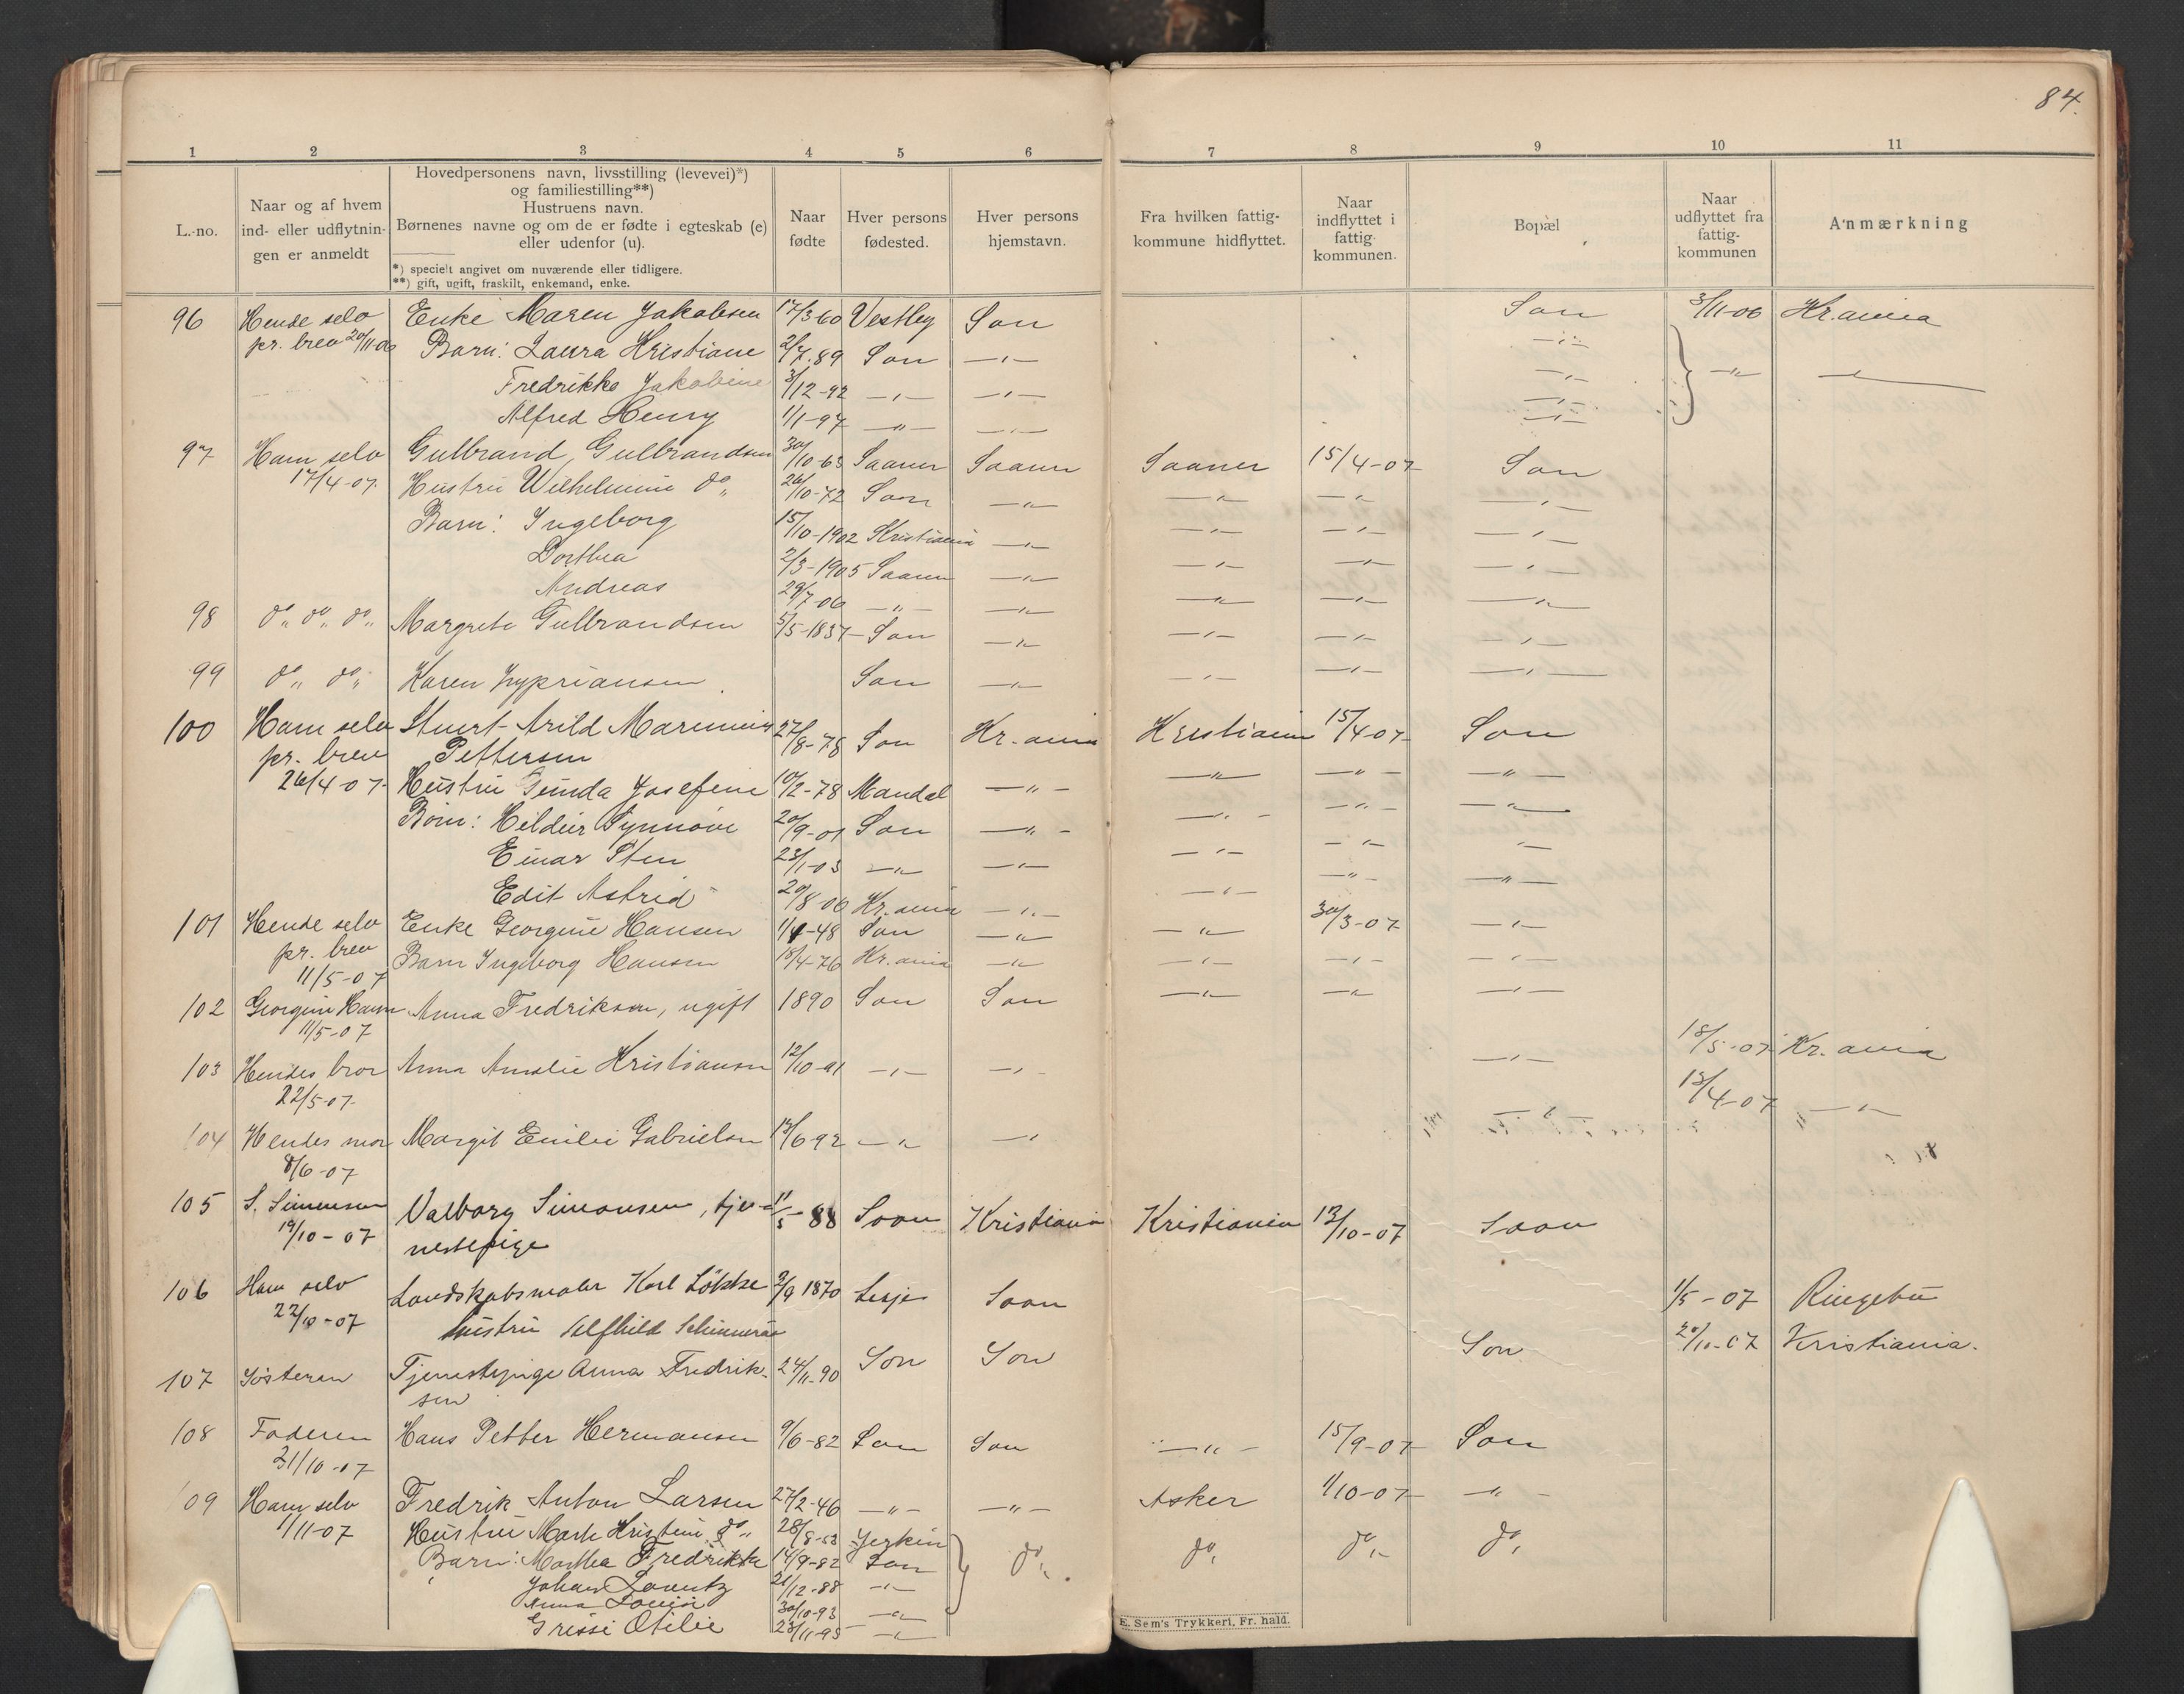 84.
1 2 3 4 5 6 7 8 9 10 11
L.-no.
Naar og af hvem
ind- eller udflytnin-
gen er anmeldt
Hovedpersonens navn, livsstilling (levevei)*)
og familiestilling**)
Hustruens navn.
Børnenes navne og om de er fødte i egteskab (e)
eller udenfor (u).
*) specielt angivet om nuværende eller tidligere.
**) gift, ugift, fraskilt, enkemand, enke.
Naar
fødte
Hver persons
fødested.
Hver persons
hjemstavn.
Fra hvilken fattig-
kommune hidflyttet.
Naar
indflyttet i
fattig-
kommunen.
Bopæl
Naar
udflyttet fra
fattig-
kommunen
Anmærkning
96 Hende selv Enke Maren Jakobsen 17/3 60 Vestby Son Son 3/11-06 Kr.ania
pr. brev 20/11-06 Barn: Laura Kristiane 2/7.89 Son —„— —„—
Fredrikke Jakobine 3/12-92 —„— —„— —„— —„— —„—
Alfred Henry 1/1-97 —„— —„— —„—
97 Ham selv Gulbrand Gulbrandsen 30/10-63 Saaner Saaner Saaner 15/4-07 Son
17/4-07. Hustru Wilhelmine do„ 26/10-72 Soon —„— —„— —„— —„—
Barn: Ingeborg 15/10-1902 Kristiania —„— —„— —„— —„—
Dorthea 2/3-1905 Saaner —„— —„— —„— —„—
Andreas 29/7-06 —„— —„— —„— —„— —„—
98 do„ do„ do„ Margrete Gulbrandsen 5/5-1837 Son —„— —„— —„— —„—
99 do„ do„ Karen Sypriansen Son —„— —„— —„— —„—
100 Ham selv Arild Marinius 27/8-78 Son Kr.ania Kristiania 15/4-07 Son
pr. brev Pettersen
26/4-07- Hustru Gunda Josefine 10/2-78 Mandal —„— —„— —„— —„—
Børn: Synnöve 20/9-01 Son —„— —„— —„— —„—
Einar Sten 23/1-03 —„— —„— —„— —„— —„—
Edit Astrid 20/8-06 Kr.ania —„— —„— —„— —„—
101 Hende selv Enke Georgine Hansen 1/4-48 Son —„— —„— 30/3-07 —„—
pr. brev Barn Ingeborg Hansen 18/4-76 Kr.ania —„— —„— —„— —„—
11/5-07
102 Georgine Hansen Anna Fredriksen, ugift 1890 Son Son —„— —„— —„—
11/5-07
103 Hendes bror Anna Amalie Kristiansen 12/10-91 —„— —„— —„— 18/5-07 Kr.ania
22/5-07.
104 Hendes mor Margit Emilie Gabrielsen 17/6 92 —„— —„— —„— 13/4-07 —„—
8/6-07
105 S. Simensen Valborg Simonsen, tje- 11/5-88 Soon Kristiania Kristiania 13/10-07 Soon
19/10-07 nestepige
106 Ham selv Landskabsmaler Karl Løkke 2/9 1870 Lesje Soon 1/5-07 Ringebu
22/10-07 hustru Alfhild
107 Søsteren Tjenestepige Anna Fredrik- 24/11-90 Son Son Son 20/10-07 Kristiania.
sen
108 Faderen Hans Petter Hermansen 9/6-82 Son Son —„— 15/9-07 Son
31/10-07
109 Ham selv Fredrik Anton Larsen 27/2-46 —„— —„— Asker 1/10-07 —„—
1/11-07 Hustru Marte Kristine do„ 28/8-53
Barn: Martha Fredrikke 14/9-82 Son do„ do„ do„ do„
Johan Lorentz 21/12-88 —„—
Anna Lovise 30/10-93 —„—
Otilie 23/11-95 —„—
E. Sem's Trykkeri, Fr.hald.